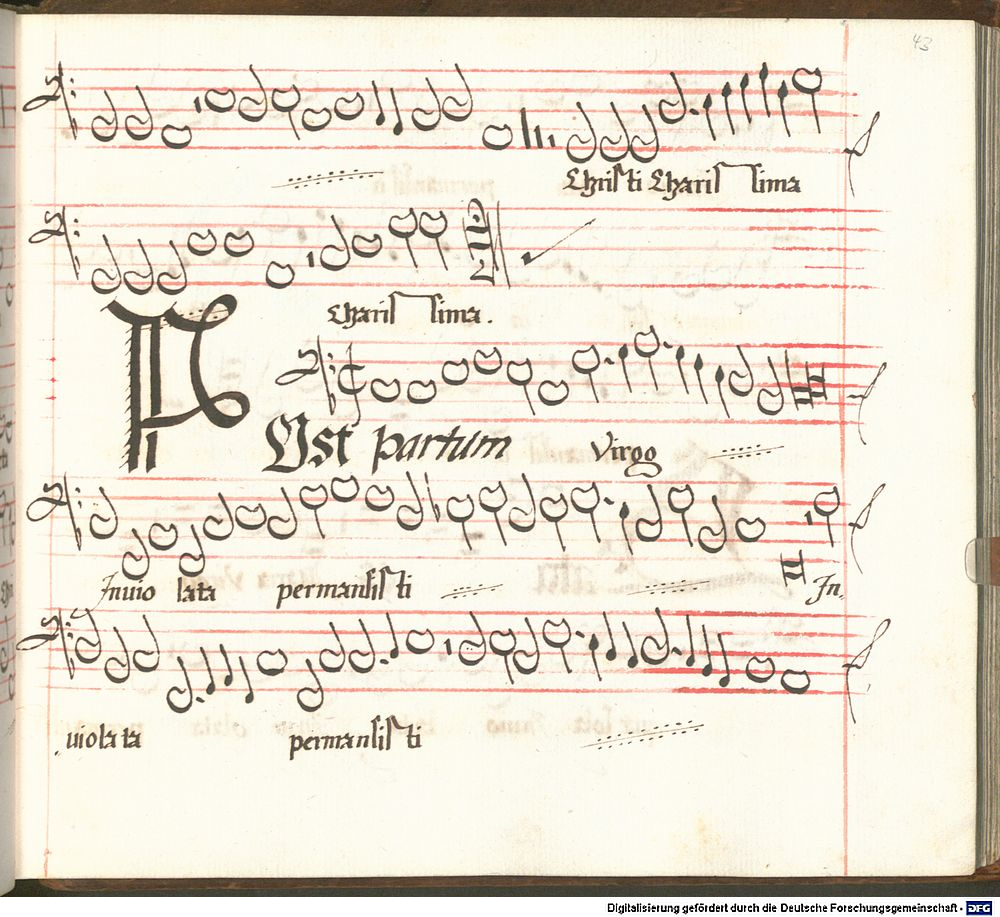 43
Christi Charissima
Charissima.
POst partum Virgo
Inuiolata permansisti In-
uiolata permansisti
Digitalisierung gefördert durch die Deutsche Forschungsgemeinschaft - DFG